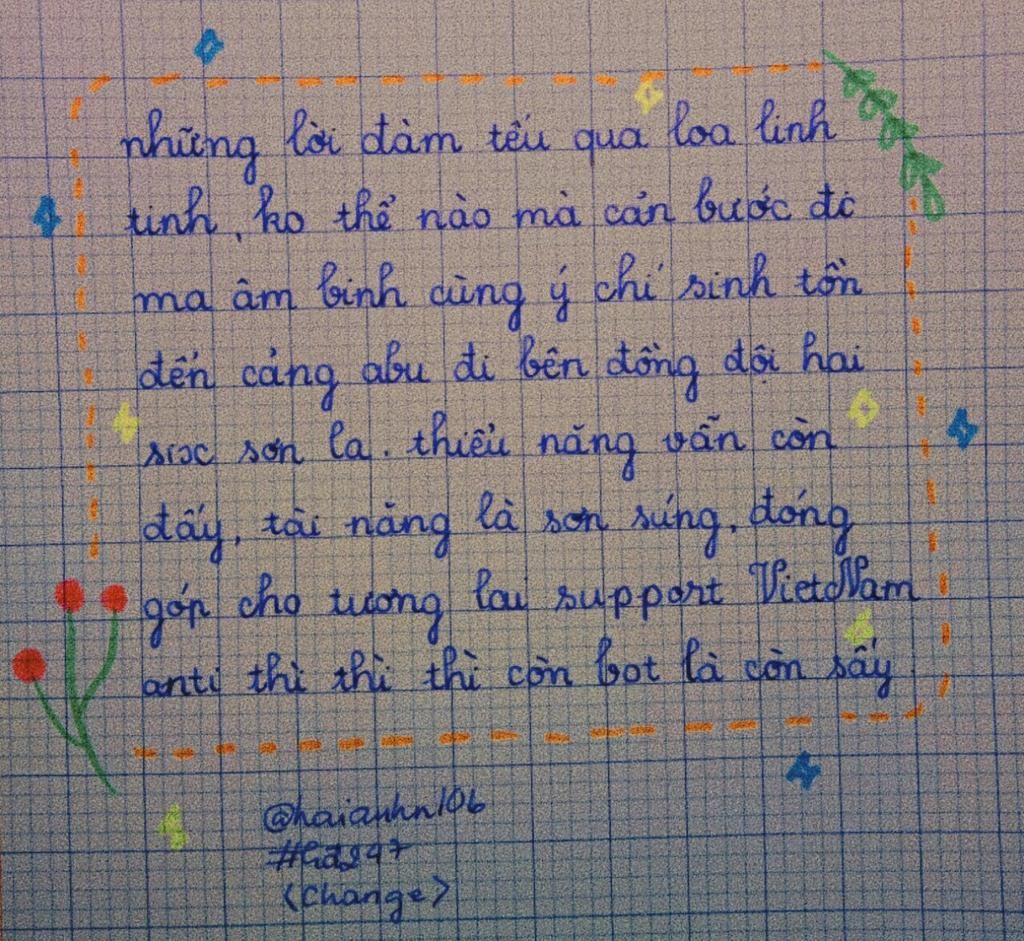 những lời đàm tếu qua loa linh
tinh, ko thể nào mà cản bước đc
ma âm binh cùng ý chí sinh tồn
đến cảng abu đi bên đồng đội hai
sroc sơn la. thiểu năng vẫn còn
đấy, tài năng là sơn súng, đóng
góp cho tương lai support VietNam
anti thì thì thì còn bot là còn sấy
@haianhn106
(Change)